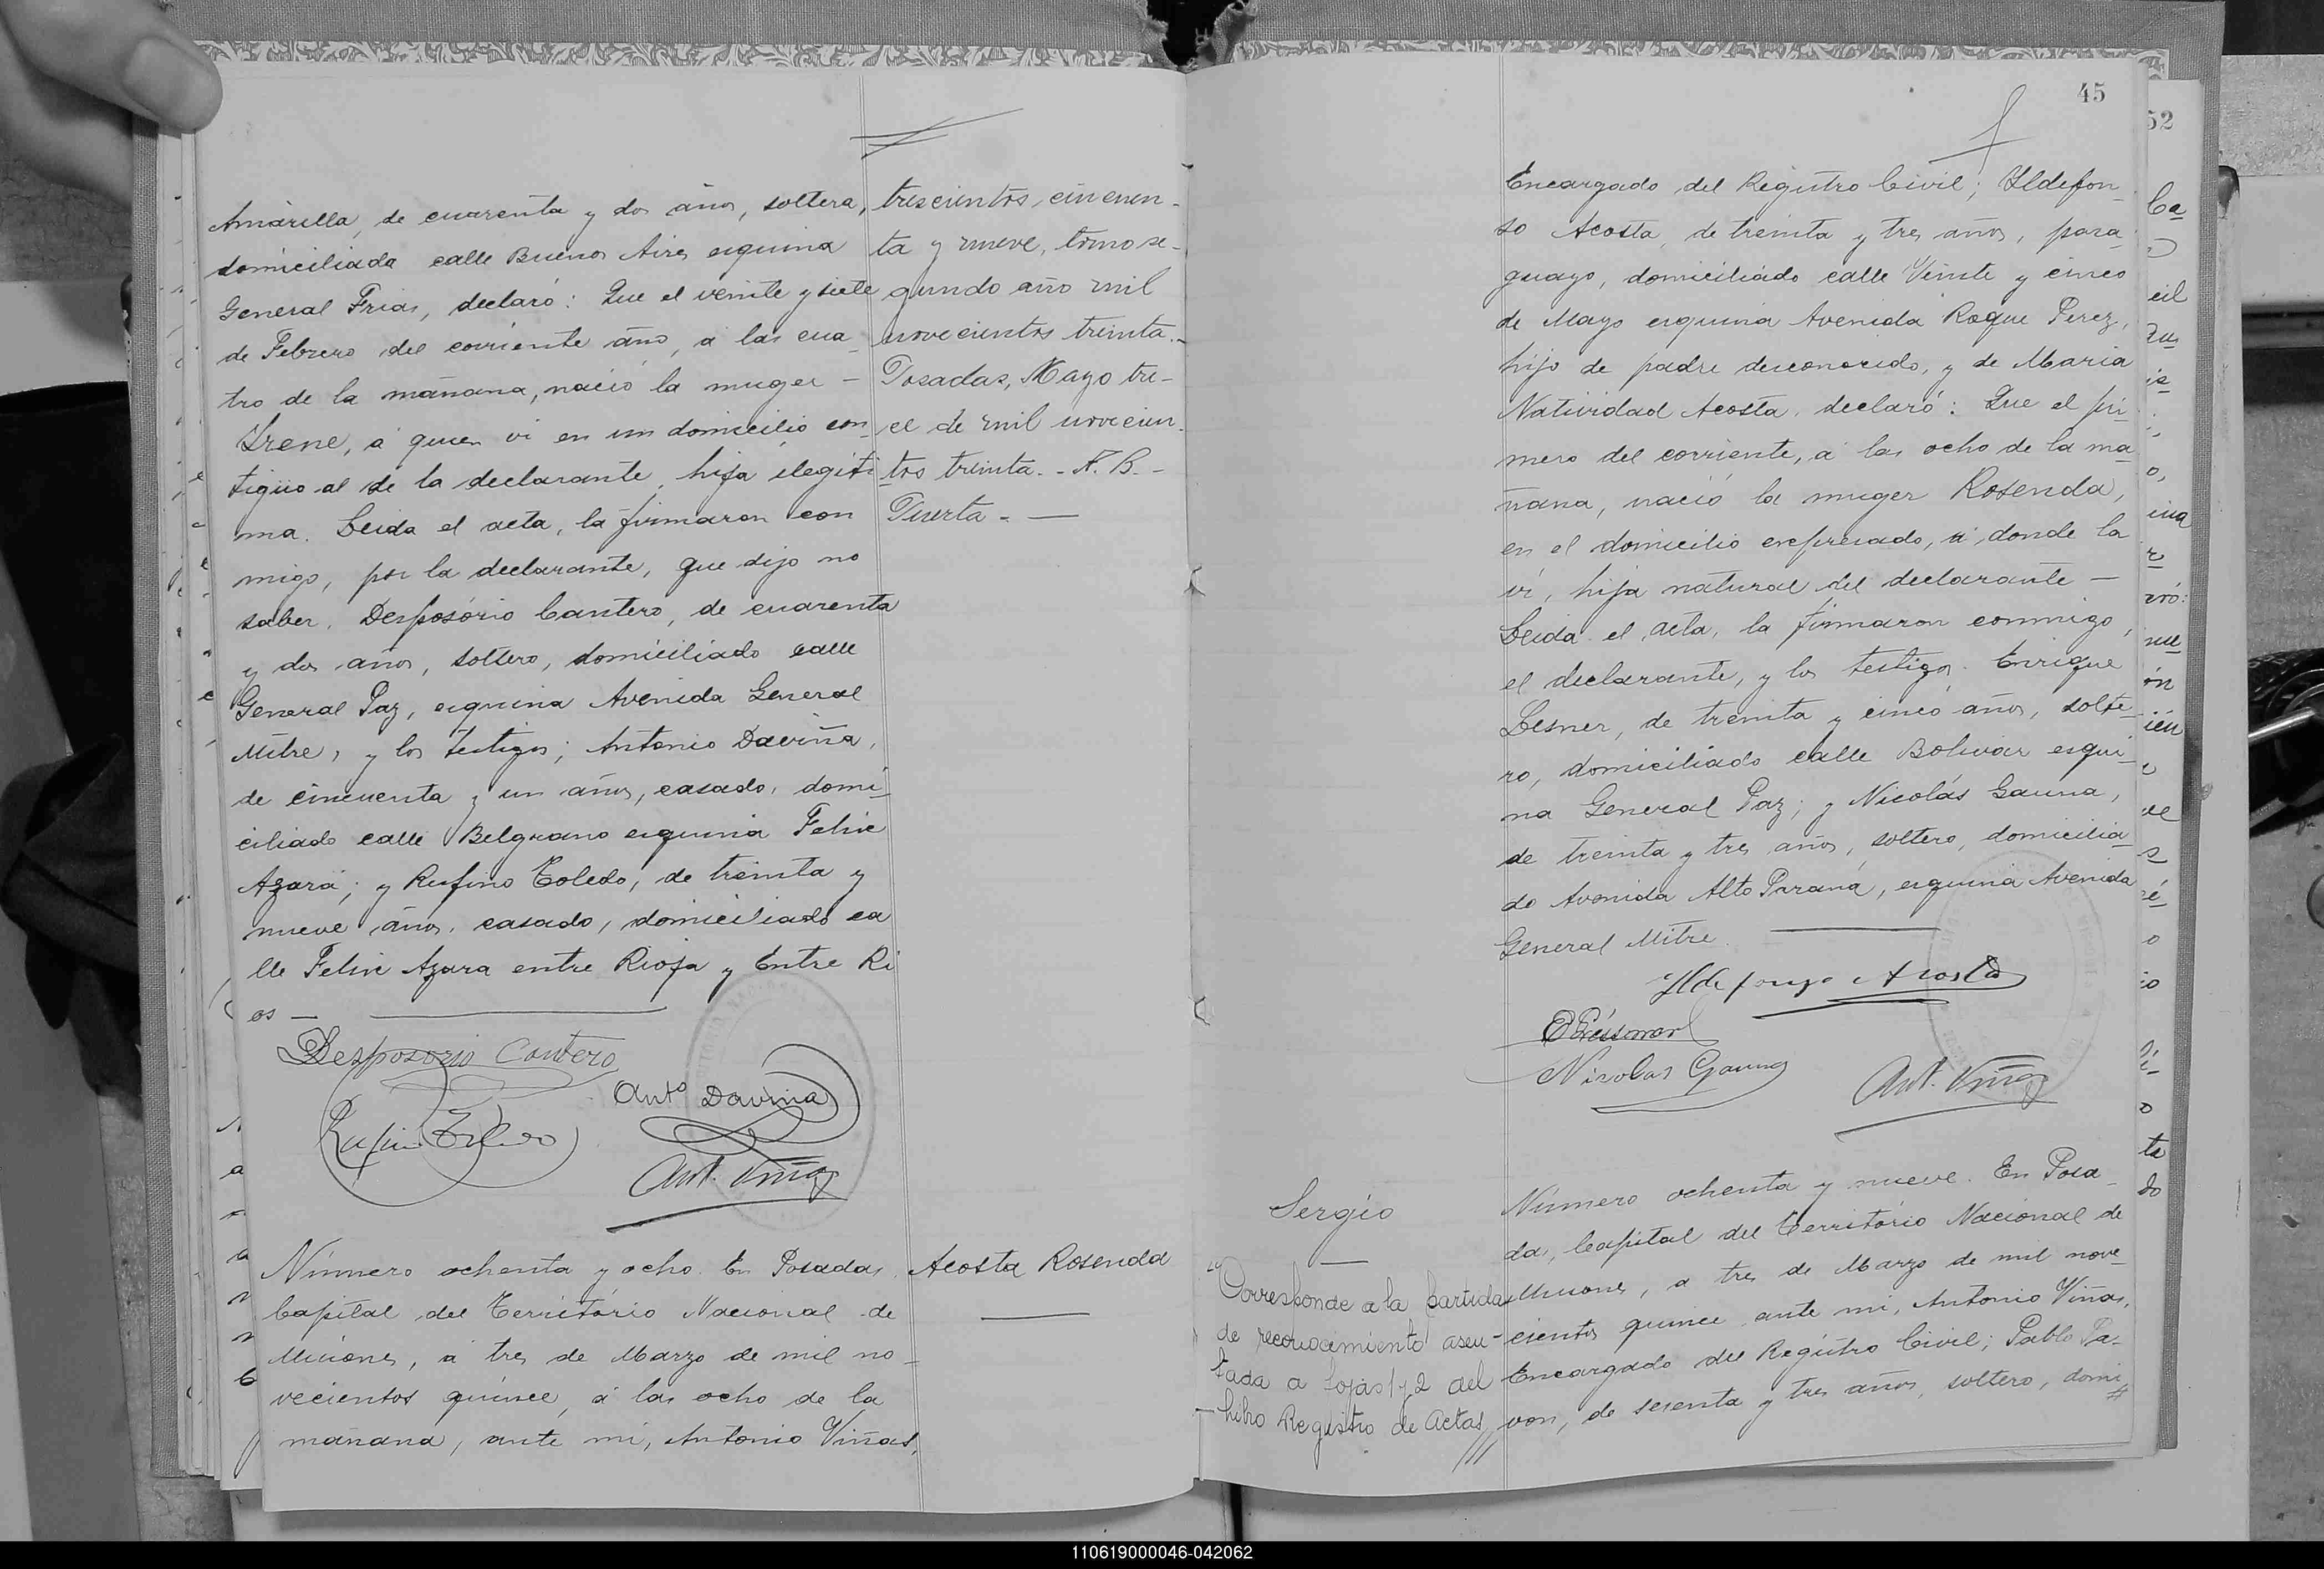 Amarilla, de cuarenta y dos años, soltera,
domiciliada calle Buenos Aires esquina
General Frias, declaró: Que el veinte y siete
de Febrero del corriente año, a las cua
tro de la mañana, nació la muger —
Irene, á quien vi en un domicilio con
tiguo al de la declarante, hija ilegiti
ma. Leida el acta, la firmaron con
migo, por la declarante, que dijo no
saber, Desposorio Cantero, de cuarenta
y dos años, soltero, domiciliado calle
General Paz, esquina Avenida General
Mitre, y los testigos; Antonio Daviña,
de cincuenta y un años, casado, domi
ciliado calle Belgrano esquina Felix
Azara; y Rufino Toledo, de treinta y
nueve años, casado, domiciliado ca
lle Felix Azara entre Rioja y Entre Ri
os —
Desposorio Cantero
Anto Daviña
Rufino Toledo
Ant. Viñas
trescientos, cincuen-
ta y nueve, tomo se-
gundo año mil
novecientos treinta.-
Posadas, Mayo tre-
ce de mil novecien-
tos treinta. - A. B. -
Puerta - —
Número ochenta y ocho. En Posadas,
Capital del Território Nacional de
Misiones, á tres de Marzo de mil no-
vecientos quince, á las ocho de la
mañana, ante mi, Antonio Viñas,
Acosta Rosenda
45
Encargado del Registro Civil; Ildefon
so Acosta, de treinta y tres años, para
guayo, domiciliado calle Veinte y cinco
de Mayo esquina Avenida Roque Perez,
hijo de padre desconocido, y de Maria
Natividad Acosta, declaró: Que el pri
mero del corriente, á las ocho de la ma
ñana, nació la muger Rosenda,
en el domicilio expresado, á donde la
vi, hija natural del declarante —
Leida el acta, la firmaron conmigo,
el declarante, y los testigos. Enrique
Lesner, de treinta y cinco años, solte
ro, domiciliado calle Bolivar esqui
na General Paz; y Nicolás Gauna,
de treinta y tres años, soltero, domicilia
do Avenida Alto Paraná, esquina Avenida
General Mitre.
Ildefonso Acosta
Nicolas Gauna
Ant. Viñas
Sergio
Corresponde a la partida
de reconocimiento asen-
tada a fojas 1 y 2 del
Registro de Actas
Número ochenta y nueve. En Posa
das, Capital del Território Nacional de
Misiones, a tres de Marzo de mil nove
cientos quince ante mi, Antonio Viñas,
Encargado del Registro Civil; Pablo Pa-
von, de sesenta y tres años, soltero, domi
52
110619000046-042062